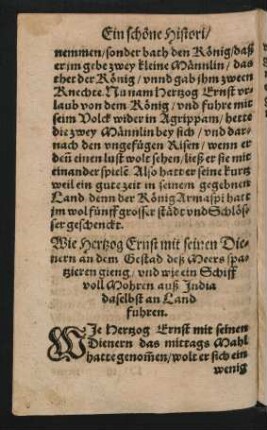 Ein schöne Histori/
nemmen/sonder bath den König/daß
er jm gebe zwey kleine Männlin/das
thet der König/vnnd gab jhm zween
Knechte. Nu nam Hertzog Ernst vr-
laub von dem König/vnd fuhre mit
seim Volck wider in Agrippam/hette
die zwey Männlin bey sich/vnd dar-
nach den vngefügen Risen/wenn er
deñ einen lust wolt sehen/ließ er sie mit
einander spielẽ. Also hatt er seine kurtz
weil ein gute zeit in seinem gegebnen
Land denn der König Armaspi hatt
jm wol fünff grosser städt vnd Schlös-
ser geschenckt.
Wie Hertzog Ernst mit seinen Die-
nern an dem Gestad deß Meers spa-
tzieren gieng/vnd wie ein Schiff
voll Mohren auß India
daselbst an Land
fuhren.
WIe Hertzog Ernst mit seinen
Dienern das mittags Mahl
hatte genom̃en/wolt er sich ein
wenig